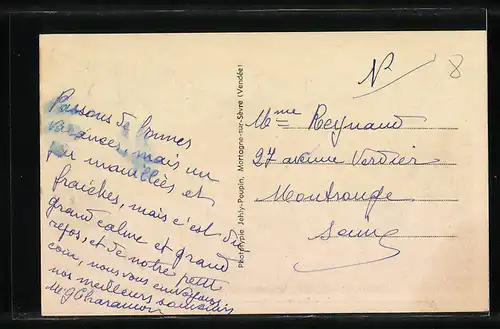 Passons de bonnes
vacances, mais un
peu mouillées et
fraîches, mais c'est du
grand calme et grand
repos, et de notre petit
coin, nous vous envoyons
nos meilleurs souvenirs
M. J. Charamon
Phototypie Jehly-Poupin, Mortagne-sur-Sèvre (Vendée)
N
8
Mme Reynaud
27 avenue Verdier
Montrouge
Seine